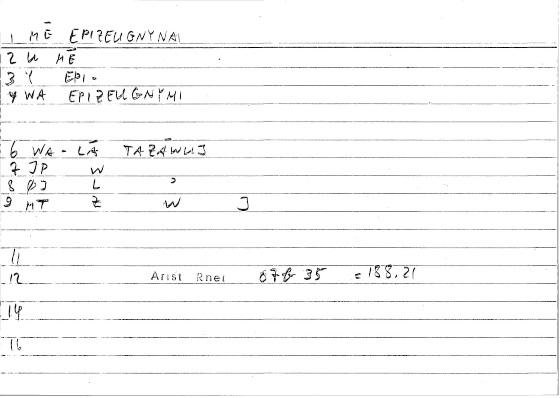 1 MĒ EPIZEUGNYNAI
2 U MĒ
3 Y EPI-
4 WA EPIZEUGNYMI
6 WA-LĀ TAZĀWUJ
7 JP W
8 ØJ L ʾ
9 MT Z W J
11
12 Arist Rhet 07b 35 = 188.21
14
16